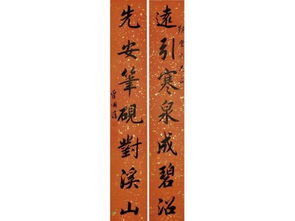 遠引寒泉成碧沼
先安筆硯對溪山